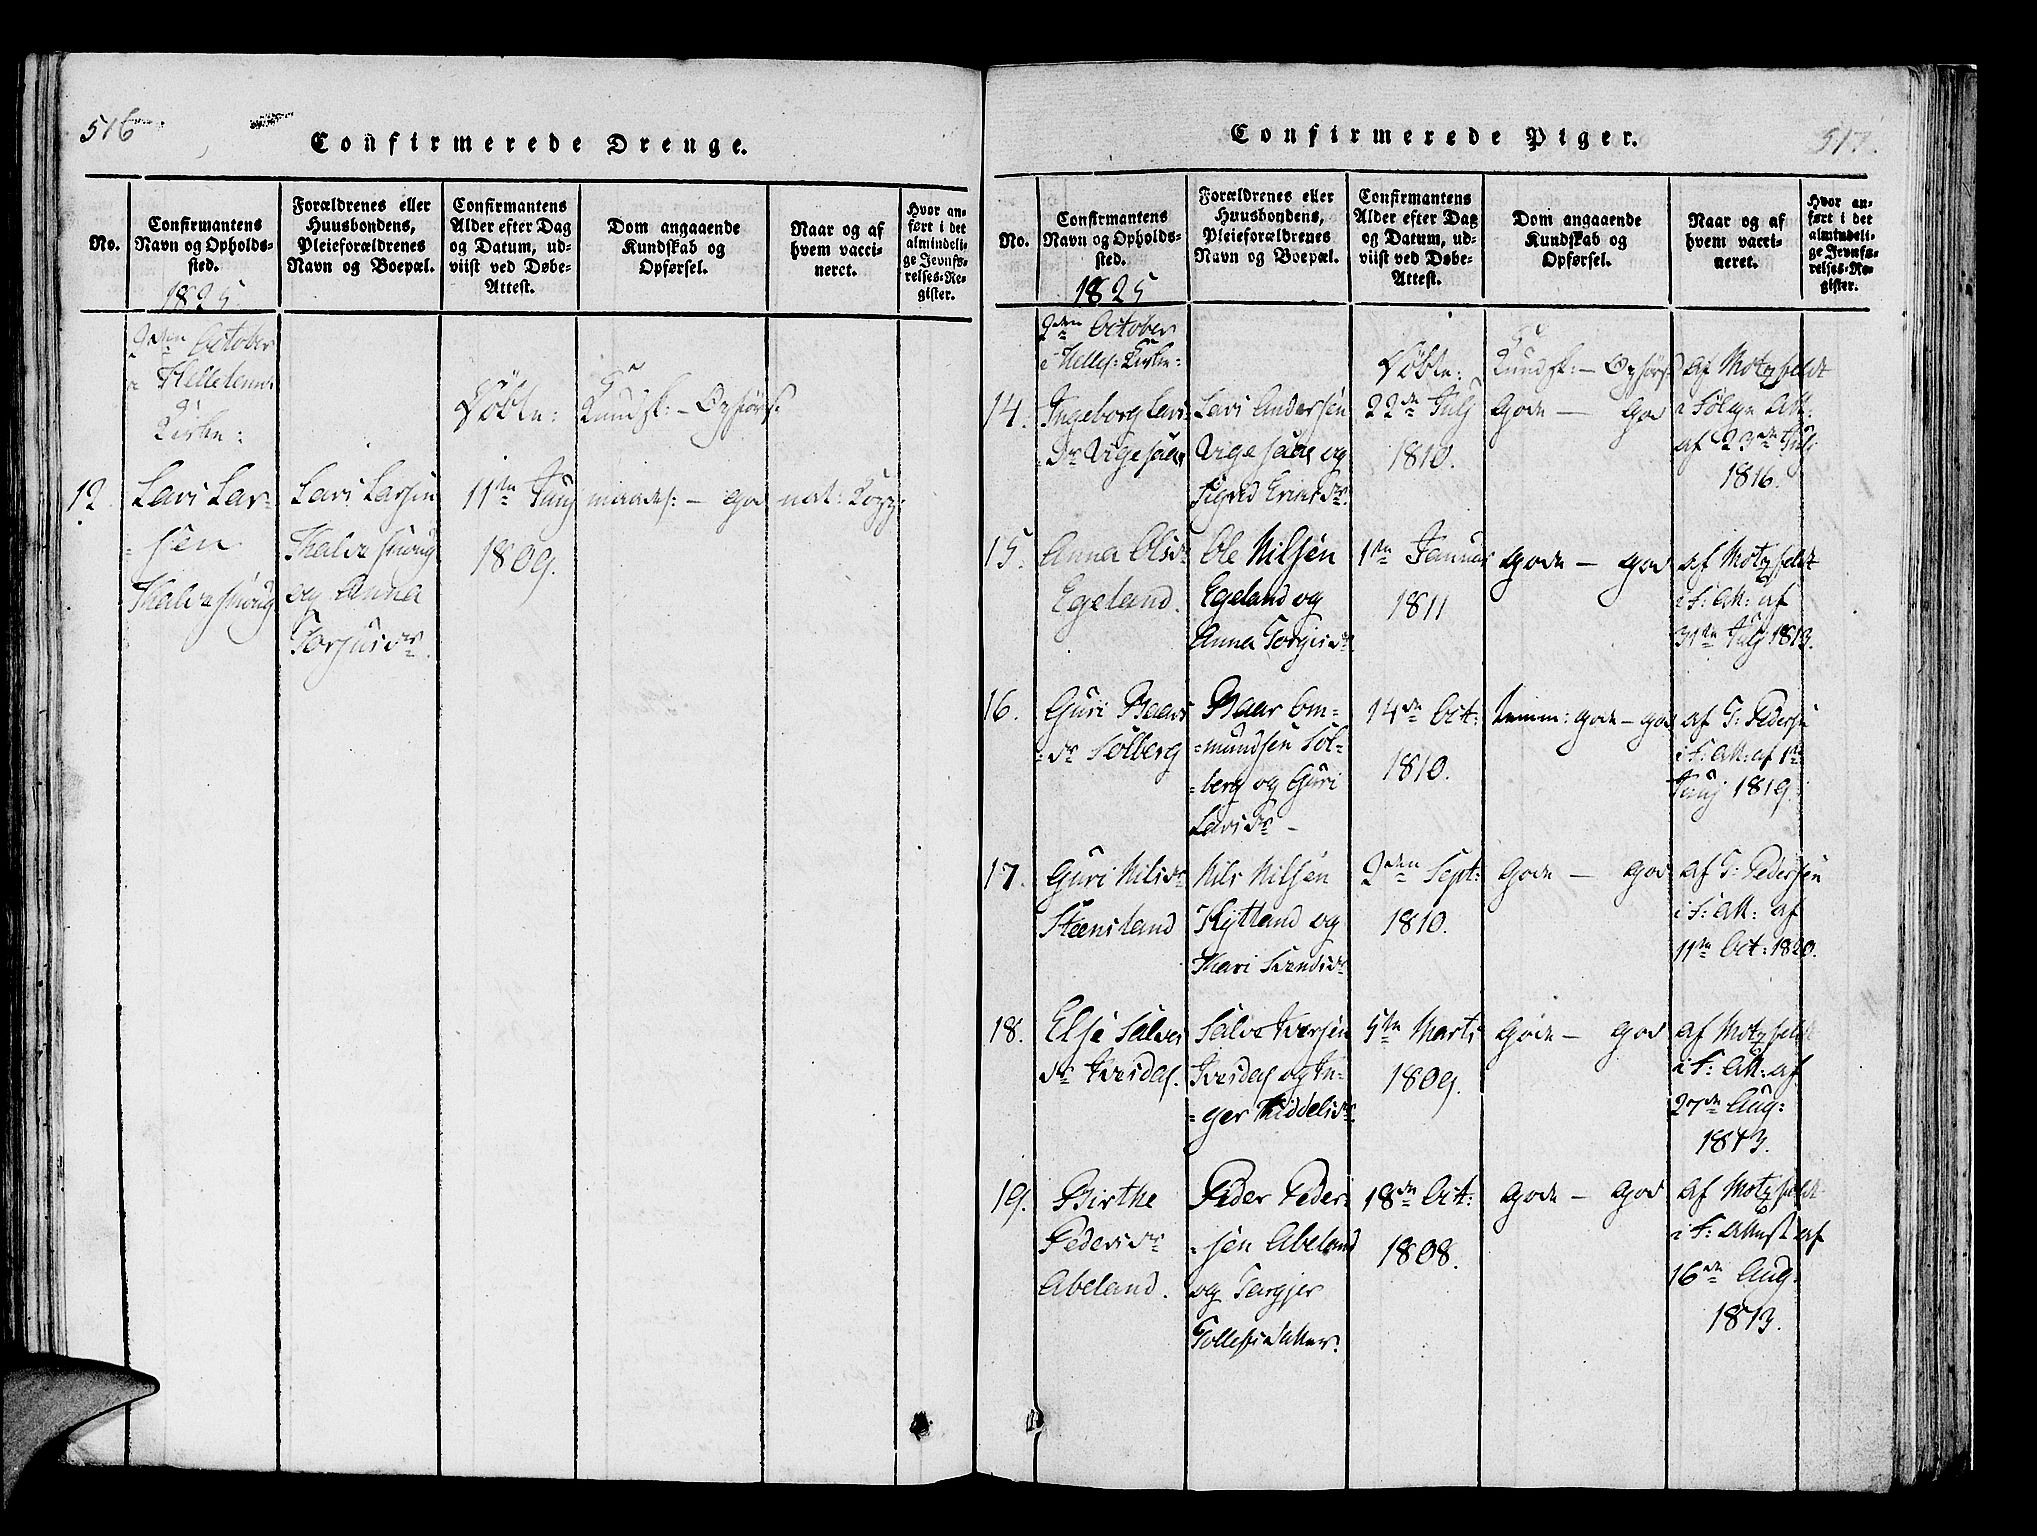 516
Confirmerede Drenge.
No.
Confirmantens
Navn og Opholds-
sted.
Forældrenes eller
Huusbondens,
Pleieforældrenes
Navn og Boepæl.
Confirmantens
Alder efter Dag
og Datum, ud-
viist ved Døbe-
Attest.
Dom angaaende
Kundskab og
Opførsel.
Naar og af
hvem vacci-
neret.
Hvor an-
ført i det
almindeli-
ge Jevnfø-
relses-Re-
gister.
1825
October
i Hellelands
Kirke:
Døbte:
Kundsk: - Opførs.
12.
Lars Lar-
sen
Lars Larsen
og Anna
Torjusdr.
11te
1809.
maades: - god
nat: Kopp:
Confirmerede Piger.
517.
No.
Confirmantens
Navn og Opholds-
sted.
Forældrenes eller
Huusbondens,
Pleieforældrenes
Navn og Boepæl.
Confirmantens
Alder efter Dag
og Datum, ud-
viist ved Døbe-
Attest.
Dom angaaende
Kundskab og
Opførsel.
Naar og af
hvem vacci-
neret.
Hvor an-
ført i det
almindeli-
ge Jevnfø-
relses-Re-
gister.
1825
October
i Hellel: Kirke:
Døbte:
Kundsk: - Opførs
14.
Ingeborg Lars
Dr Vigesaae
Lars Andersen
Vigesaae og
Sigrid Ericksdr.
22de July
1810.
gode - god
af Motzfeldt
i Følge Att:
af 23de July
1816.
15.
Anna Olsdr
Egeland.
Ole Nilsen
Egeland og
Anna Torgersdr
1te Januar
1811
gode - god
af Motzfeldt
i F: Att: af
31te July 1813.
16.
Guri Baars
dr Solberg
Baar Om-
=mundsen Sol-
=berg og Guri
Larsdr -
14de Oct:
1810.
temm: gode - god
af T: Pedersen
i F: Att: af 1te
Juny 1819.
17.
Guri Nilsdr
Steensland
Nils Nilsen
Kytland og
Mari Svendsdr
Sept:
1810.
gode - god
af T: Pedersen
i F: Att: af
11te Oct: 1820.
18.
Else Salves
dr Ivesdal.
Salve Iversen
Ivesdal og In-
=ger Middelsdr
5te Marts
1809.
gode - god
af Motzfeldt
i F: Att: af
27de Aug:
1813.
19.
Birthe
Pedersdr
Abeland.
Peder Peder-
=sen Abeland
og Targjer
Tollefsdatter.
18de Oct:
1808.
gode - god
af Motzfeldt
i F: Attest af
16de Aug:
1813.